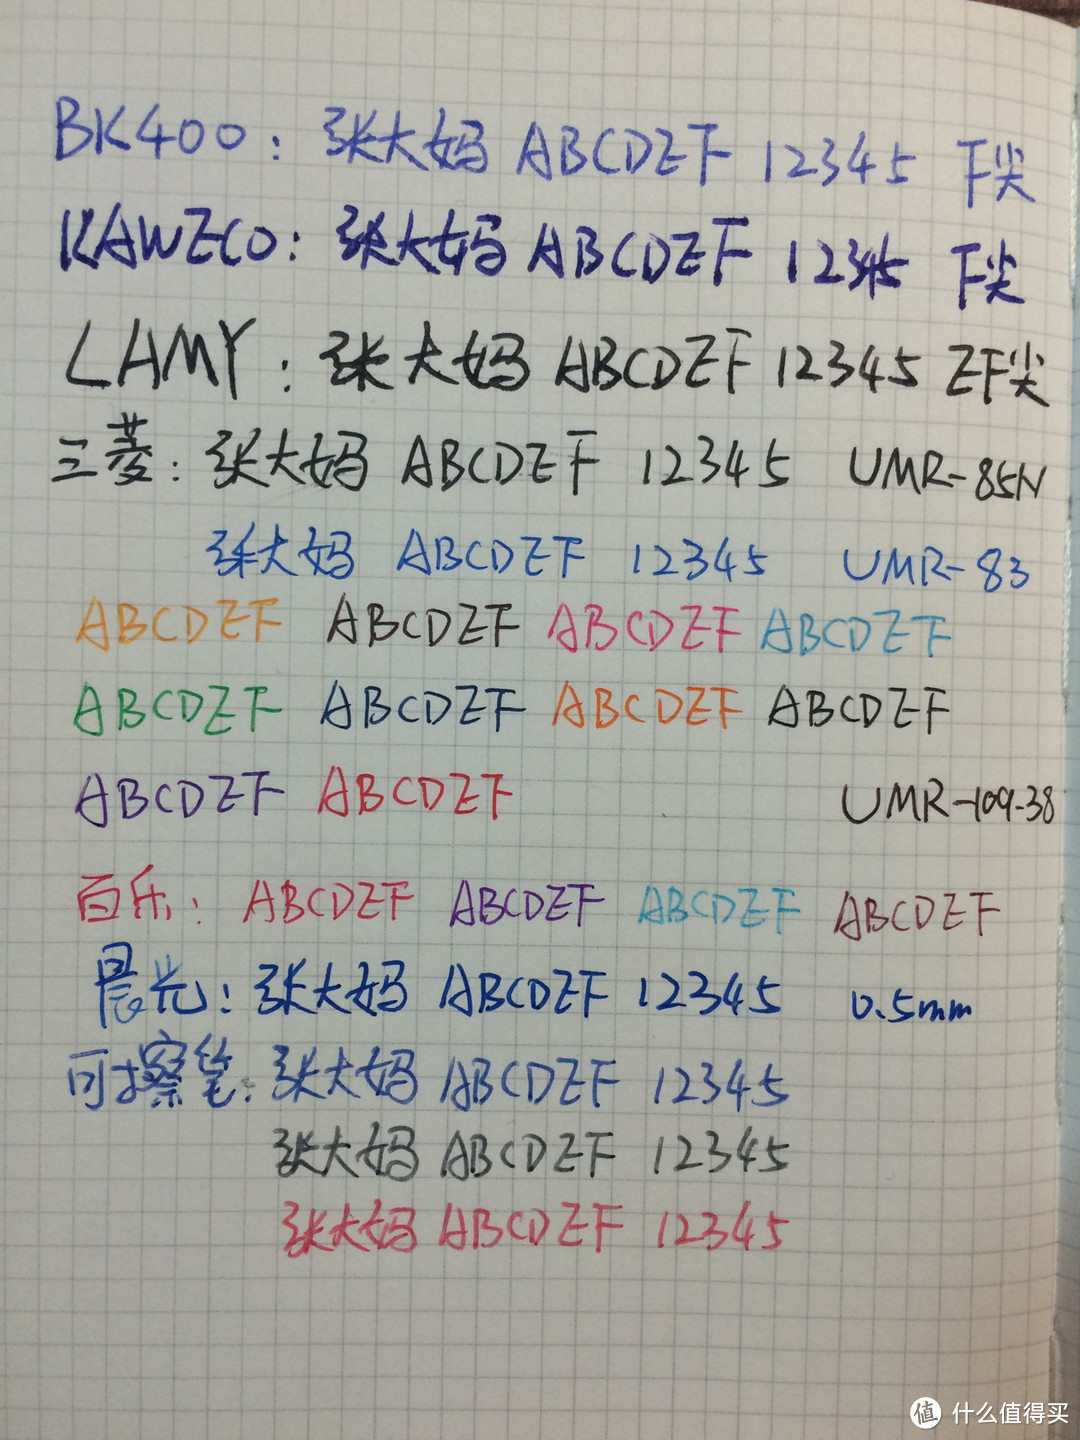 BK400: 张大妈 ABCDEF 12345 F尖
KAWECO: 张大妈 ABCDEF 12345 F尖
LAMY: 张大妈 ABCDEF 12345 EF尖
三菱: 张大妈 ABCDEF 12345 UMR-85N
张大妈 ABCDEF 12345 UMR-83
ABCDEF ABCDEF ABCDEF ABCDEF
ABCDEF ABCDEF ABCDEF ABCDEF
ABCDEF ABCDEF UMR-109-38
百乐: ABCDEF ABCDEF ABCDEF ABCDEF
晨光: 张大妈 ABCDEF 12345 0.5mm
可擦笔: 张大妈 ABCDEF 12345
张大妈 ABCDEF 12345
张大妈 ABCDEF 12345
值 什么值得买